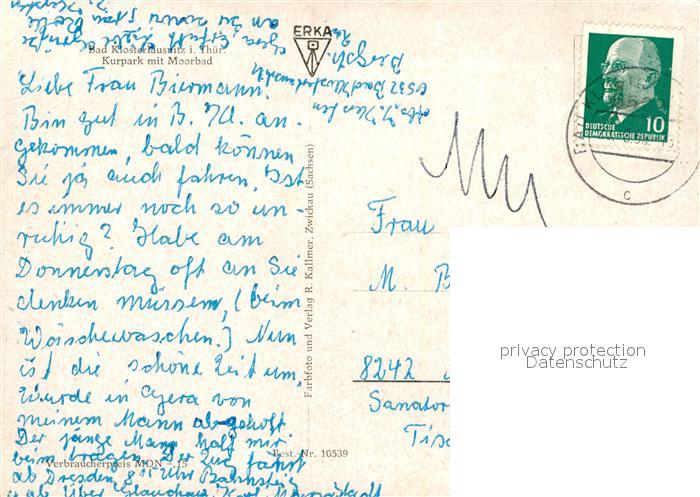 Bad Klosterlausnitz i. Thür.
Kurpark mit Moorbad
ERKA
Liebe Frau Biermann!
Bin gut in B. Kl. an-
gekommen, bald können
Sie ja auch fahren, Ist
es immer noch so un-
ruhig? Habe am
Donnerstag oft an Sie
denken müssen, (beim
Wäschewaschen.) Nun
ist die schöne Zeit um,
wurde in Gera von
meinem Mann abgeholt
Der junge Mann half mir
beim tragen. Der Zug fährt
ab Dresden 8 Uhr Bahnsteig
Verbraucherpreis MDN -.15
Best.-Nr. 10539
Farbfoto und Verlag R. Kallmer, Zwickau (Sachsen)
DEUTSCHE
DEMOKRATISCHE REPUBLIK
10
c
Frau
M. B
8242
Sanator
Tis
privacy protection
Datenschutz